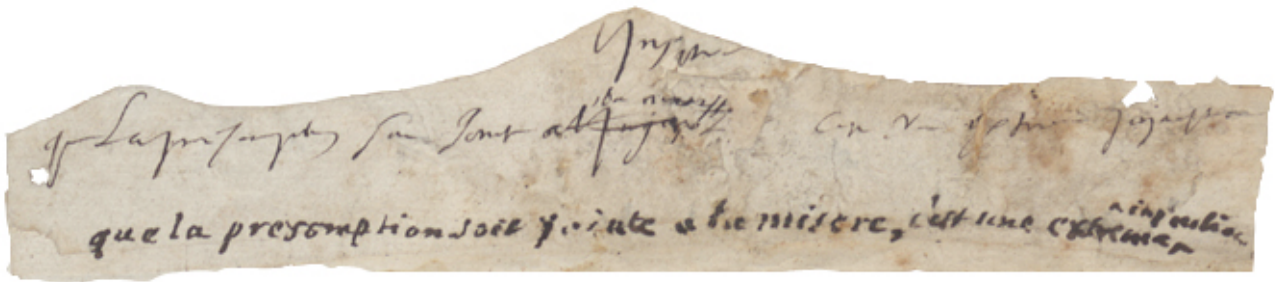 Injustice
que La presomption soit jointe a la misere C'est Une extreme injustice
que la presomption soit jointe a la misere, c'est une extreme injustice